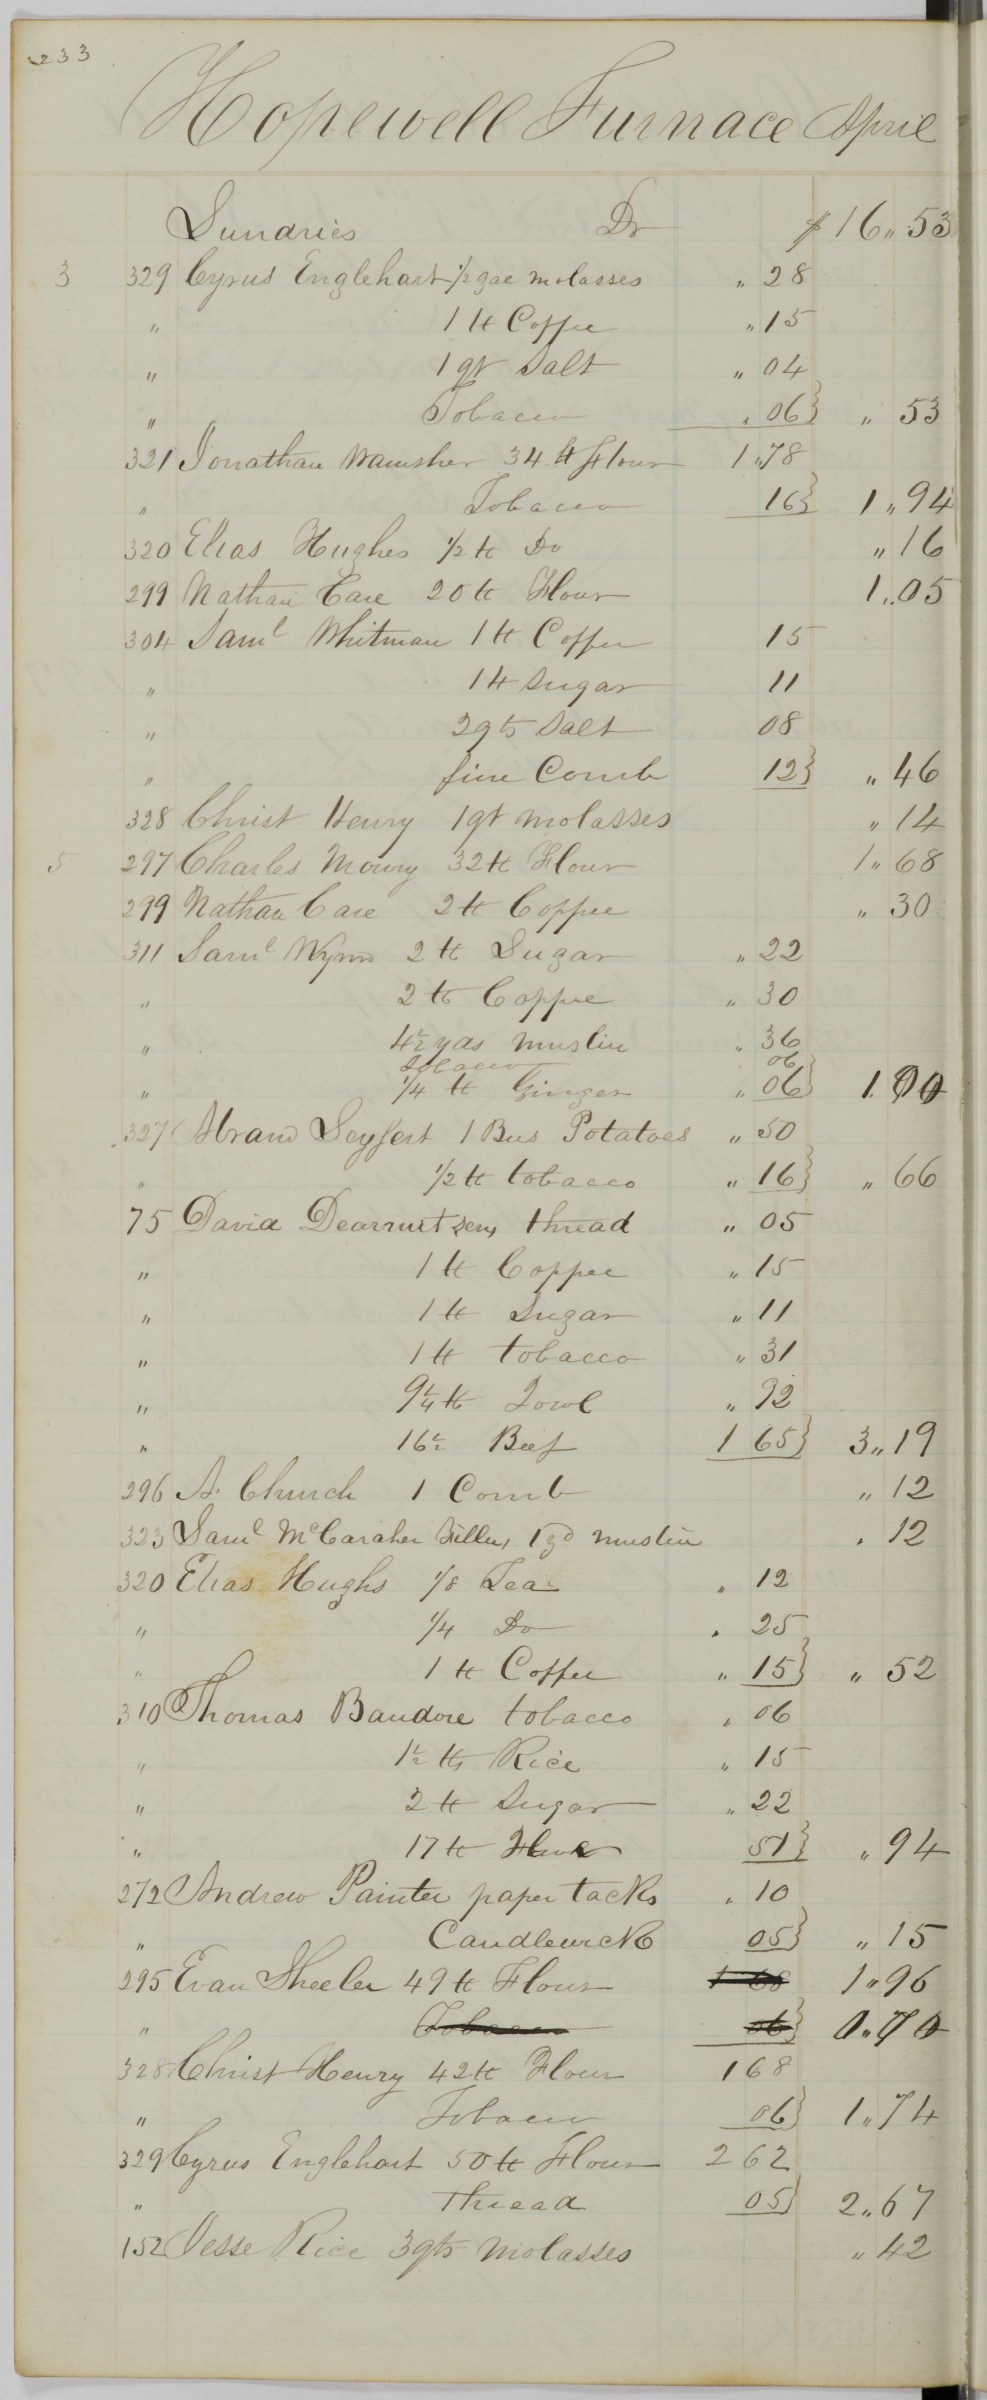 233
Hopewell Furnace April
Sundries Dr $ 16 " 53
3 329 Cyrus Englehart 1/2 gal molasses " 28
" 1 lb Coffee " 15
" 1 qt Salt " 04
" Tobacco " 06} " 53
321 Jonathan Wamsher 34 lb Flour 1 " 78
" Tobacco 16} 1 " 94
320 Elias Hughes 1/2 lb Do " 16
299 Nathan Care 20 lb Flour 1 " 05
304 Saml Whitman 1 lb Coffee 15
" 1 lb Sugar 11
" 2 qts Salt 08
" fine Comb 12} " 46
328 Christ Henry 1 qt molasses " 14
5 297 Charles Mowry 32 lb Flour 1 " 68
299 Nathan Care 2 lb Coffee " 30
311 Saml Wynn 2 lb Sugar " 22
" 2 lb Coffee " 30
" 4 1/2 yds muslin " 36
tobacco 06
" 1/4 lb Ginger " 06} 1 00
327 Abram Seyfert 1 Bus Potatoes " 50
" 1/2 lb tobacco " 16} " 66
75 David Dearruit sen, thread " 05
" 1 lb Coffee " 15
" 1 lb Sugar " 11
" 1 lb tobacco " 31
" 9 1/4 lb Jowl " 92
" 16 1/2 Beef 1 65} 3 " 19
296 A. Church 1 Comb " 12
323 Saml McCaraher Filler, 1 yd muslin " 12
320 Elias Hughs 1/8 Tea " 12
" 1/4 Do " 25
" 1 lb Coffee " 15} " 52
310 Thomas Baudore tobacco " 06
" 1 1/2 lbs Rice " 15
" 2 lb Sugar " 22
" 17 lb Flour 51} " 94
272 Andrew Painter paper tacks " 10
" Candlewick 05} " 15
295 Evan Sheeler 49 lb Flour 1 68 1 " 96
" Tobacco 06} 0 " 70
328 Christ Henry 42 lb Flour 1 68
" Tobacco 06} 1 " 74
329 Cyrus Englehart 50 lb Flour 2 62
" Thread 05} 2 " 67
152 Jesse Rice 3 qts molasses " 42